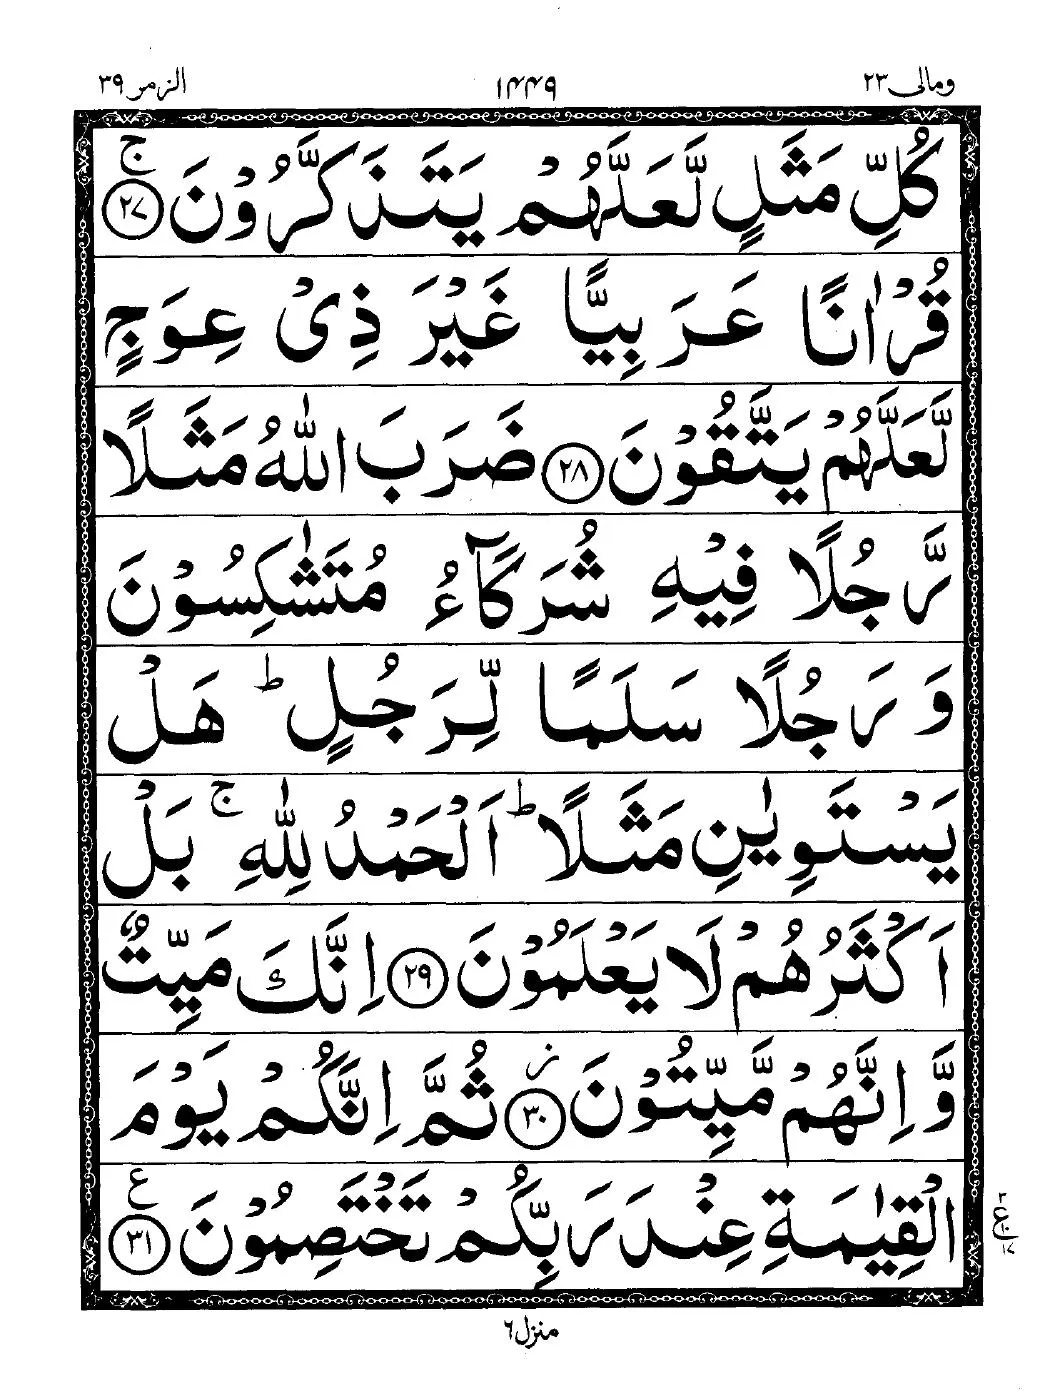 ومالی ٢٣ ١٤٤٩ الزمر ٣٩
كُلِّ مَثَلٍ لَّعَلَّهُمْ يَتَذَكَّرُوْنَ ۚ ﴿٢٧﴾
قُرْاٰنًا عَرَبِيًّا غَيْرَ ذِىْ عِوَجٍ
لَّعَلَّهُمْ يَتَّقُوْنَ ﴿٢٨﴾ ضَرَبَ اللّٰهُ مَثَلًا
رَّجُلًا فِيْهِ شُرَكَآءُ مُتَشٰكِسُوْنَ
وَرَجُلًا سَلَمًا لِّرَجُلٍ ؕ هَلْ
يَسْتَوِيٰنِ مَثَلًا ؕ اَلْحَمْدُ لِلّٰهِ ۚ بَلْ
اَكْثَرُهُمْ لَا يَعْلَمُوْنَ ﴿٢٩﴾ اِنَّكَ مَيِّتٌ
وَّاِنَّهُمْ مَّيِّتُوْنَ ز ﴿٣٠﴾ ثُمَّ اِنَّكُمْ يَوْمَ
الْقِيٰمَةِ عِنْدَ رَبِّكُمْ تَخْتَصِمُوْنَ ع ﴿٣١﴾
٣ ع ١٠ ١٧
منزل ٦